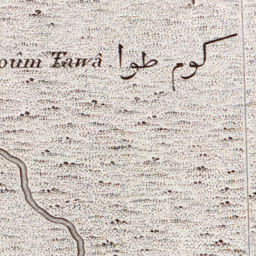 oûm Tawâ كوم طوا